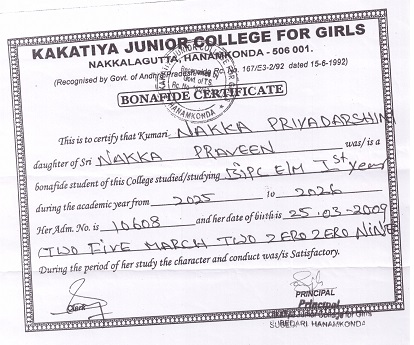 KAKATIYA JUNIOR COLLEGE FOR GIRLS
NAKKALAGUTTA, HANAMKONDA - 506 001.
(Recognised by Govt. of Andhra Pradesh Rc. No. 167/E3-2/92 dated 15-6-1992)
BONAFIDE CERTIFICATE
This is to certify that Kumari NAKKA PRIYADARSHINI
daughter of Sri NAKKA PRAVEEN was/is a
bonafide student of this College studied/studying BiPC E/M Ist year
during the academic year from 2025 to 2026
Her Adm. No. is 10608 and her date of birth is 25-03-2009
(TWO FIVE MARCH TWO ZERO ZERO NINE
During the period of her study the character and conduct was/is Satisfactory.
Clerk
PRINCIPAL
Principal
College for Girls
SUBEDARI HANAMKONDA